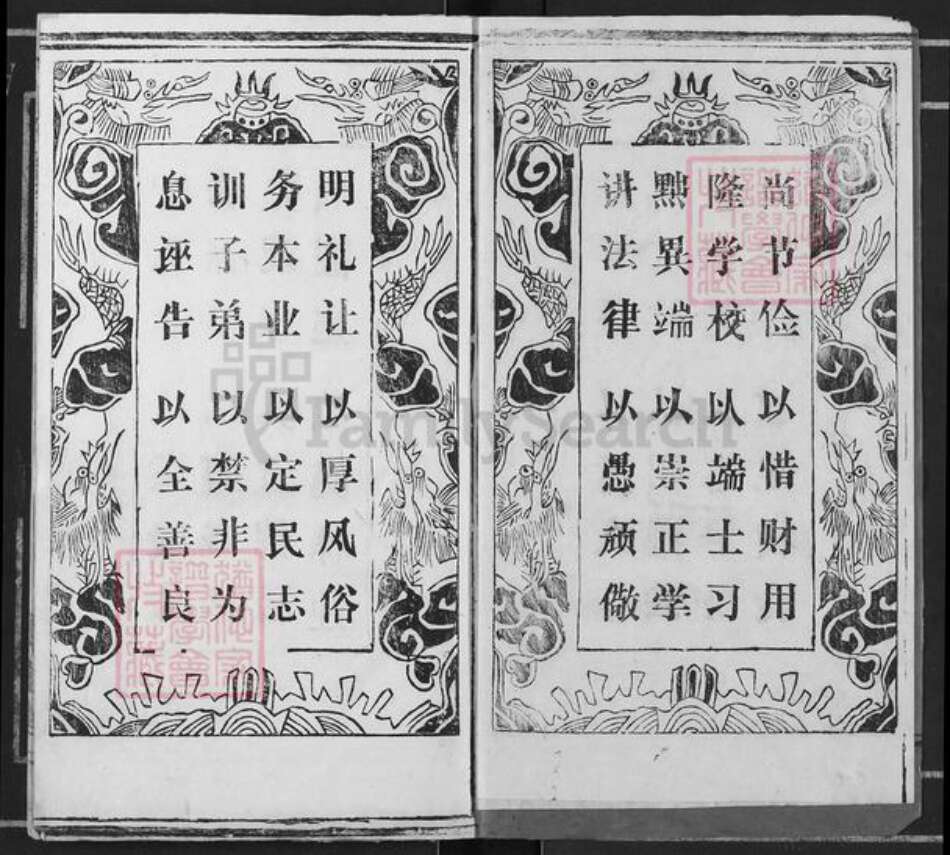 尚节俭 以惜财用
隆学校 以端士习
黜異端 以崇正学
讲法律 以愚顽儆
明礼让 以厚风俗
务本业 以定民志
训子弟 以禁非为
息诬告 以全善良
FamilySearch